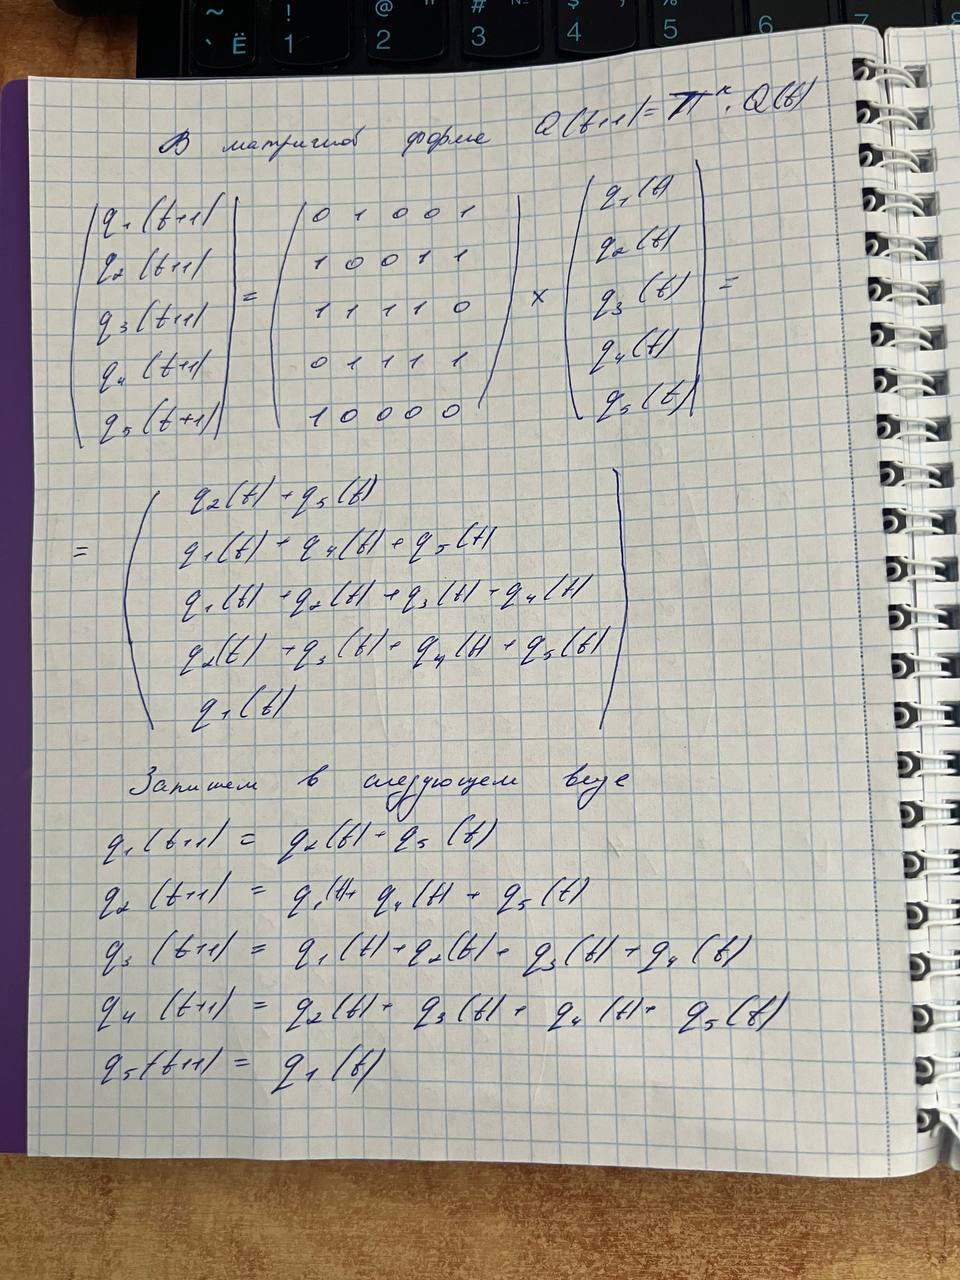 ~ ! @ " # № $ ; %
` Ё 1 2 3 4 5 6 7 8
В матричной форме Q(t+1) = T^k · Q(t)
q₁(t+1) = 0 1 0 0 1 q₁(t)
q₂(t+1) 1 0 0 1 1 q₂(t)
q₃(t+1) 1 1 1 1 0 × q₃(t) =
q₄(t+1) 0 1 1 1 1 q₄(t)
q₅(t+1) 1 0 0 0 0 q₅(t)
q₂(t) + q₅(t)
= q₁(t) + q₄(t) + q₅(t)
q₁(t) + q₂(t) + q₃(t) + q₄(t)
q₂(t) + q₃(t) + q₄(t) + q₅(t)
q₁(t)
Запишем в следующем виде
q₁(t+1) = q₂(t) + q₅(t)
q₂(t+1) = q₁(t) + q₄(t) + q₅(t)
q₃(t+1) = q₁(t) + q₂(t) + q₃(t) + q₄(t)
q₄(t+1) = q₂(t) + q₃(t) + q₄(t) + q₅(t)
q₅(t+1) = q₁(t)